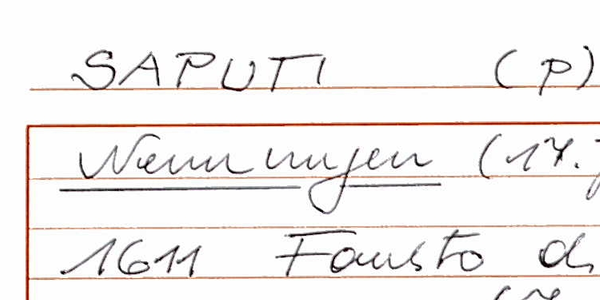 SAPUTI (P)
Nennungen (17.
1611 Fausto d